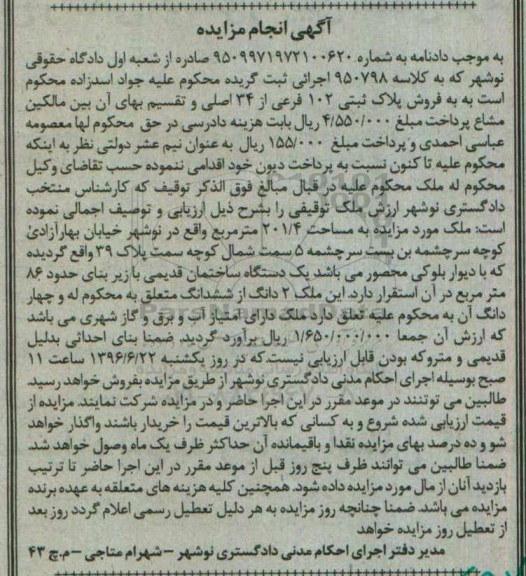 آگهی انجام مزایده
به موجب دادنامه به شماره ۹۵۰۹۹۷۱۹۷۲۱۰۰۶۲۰ صادره از شعبه اول دادگاه حقوقی
نوشهر که به کلاسه ۹۵۰۷۹۸ اجرائی ثبت گریده محکوم علیه جواد اسدزاده محکوم
است به به فروش پلاک ثبتی ۱۰۲ فرعی از ۳۴ اصلی و تقسیم بهای آن بین مالکین
مشاع پرداخت مبلغ ۴/۵۵۰/۰۰۰ ریال بابت هزینه دادرسی در حق محکوم لها معصومه
عباسی احمدی و پرداخت مبلغ ۱۵۵/۰۰۰ ریال به عنوان نیم عشر دولتی نظر به اینکه
محکوم علیه تا کنون نسبت به پرداخت دیون خود اقدامی ننموده حسب تقاضای وکیل
محکوم له ملک محکوم علیه در قبال مبالغ فوق الذکر توقیف که کارشناس منتخب
دادگستری نوشهر ارزش ملک توقیفی را بشرح ذیل ارزیابی و توصیف اجمالی نموده
است: ملک مورد مزایده به مساحت ۲۰۱/۴ مترمربع واقع در نوشهر خیابان بهارآزادی
کوچه سرچشمه بن بست سرچشمه ۵ سمت شمال کوچه سمت پلاک ۳۹ واقع گردیده
که با دیوار بلوکی محصور می باشد یک دستگاه ساختمان قدیمی با زیر بنای حدود ۸۶
متر مربع در آن استقرار دارد. این ملک ۲ دانگ از ششدانگ متعلق به محکوم له و چهار
دانگ آن به محکوم علیه تعلق دارد ملک دارای امتیاز آب و برق و گاز شهری می باشد
که ارزش آن جمعا ۱/۶۵۰/۰۰۰/۰۰۰ ریال برآورد گردید. ضمنا بنای احداثی بدلیل
قدیمی و متروکه بودن قابل ارزیابی نیست.که در روز یکشنبه ۱۳۹۶/۶/۲۲ ساعت ۱۱
صبح بوسیله اجرای احکام مدنی دادگستری نوشهر از طریق مزایده بفروش خواهد رسید.
طالبین می توتنند در موعد مقرر در این اجرا حاضر و در مزایده شرکت نمایند. مزایده از
قیمت ارزیابی شده شروع و به کسانی که بالاترین قیمت را خریدار باشند واگذار خواهد
شو و ده درصد بهای مزایده نقدا و باقیمانده آن حداکثر ظرف یک ماه وصول خواهد شد.
ضمنا طالبین می توانند ظرف پنج روز قبل از موعد مقرر در این اجرا حاضر تا ترتیب
بازدید آنان از مال مورد مزایده داده شود. همچنین کلیه هزینه های متعلقه به عهده برنده
مزایده می باشد. ضمنا چنانچه روز مزایده به هر دلیل تعطیل رسمی اعلام گردد روز بعد
از تعطیل روز مزایده خواهد
مدیر دفتر اجرای احکام مدنی دادگستری نوشهر – شهرام متاجی – م.چ ۴۳